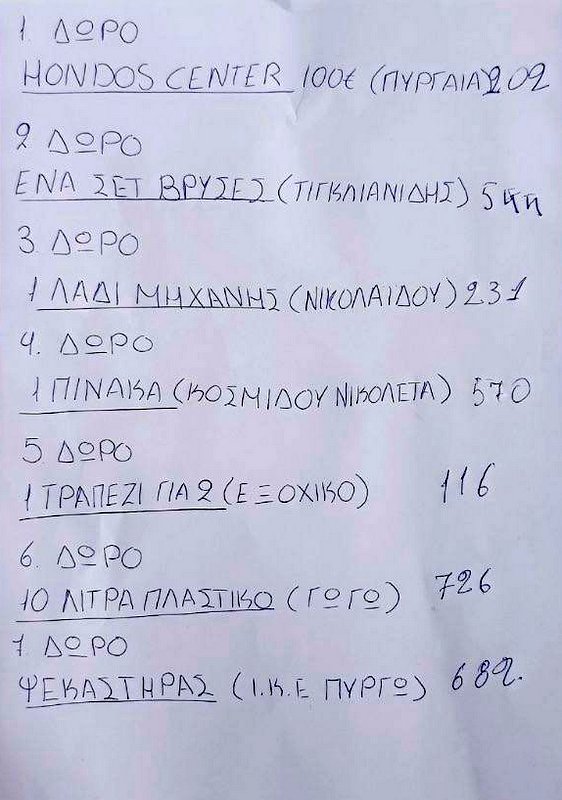 1. ΔΩΡΟ
HONDOS CENTER 100€ (ΠΥΡΓΑΙΑ) 202
2 ΔΩΡΟ
ΕΝΑ ΣΕΤ ΒΡΥΣΕΣ (ΤΙΓΚΛΙΑΝΙΔΗΣ) 544
3. ΔΩΡΟ
1 ΛΑΔΙ ΜΗΧΑΝΗΣ (ΝΙΚΟΛΑΙΔΟΥ) 231
4. ΔΩΡΟ
1 ΠΙΝΑΚΑ (ΚΟΣΜΙΔΟΥ ΝΙΚΟΛΕΤΑ) 570
5. ΔΩΡΟ
1 ΤΡΑΠΕΖΙ ΓΙΑ 2 (ΕΞΟΧΙΚΟ) 116
6. ΔΩΡΟ
10 ΛΙΤΡΑ ΠΛΑΣΤΙΚΟ (ΓΩΓΩ) 726
7. ΔΩΡΟ
ΨΕΚΑΣΤΗΡΑΣ (Ι.Κ.Ε ΠΥΡΓΩ) 682.